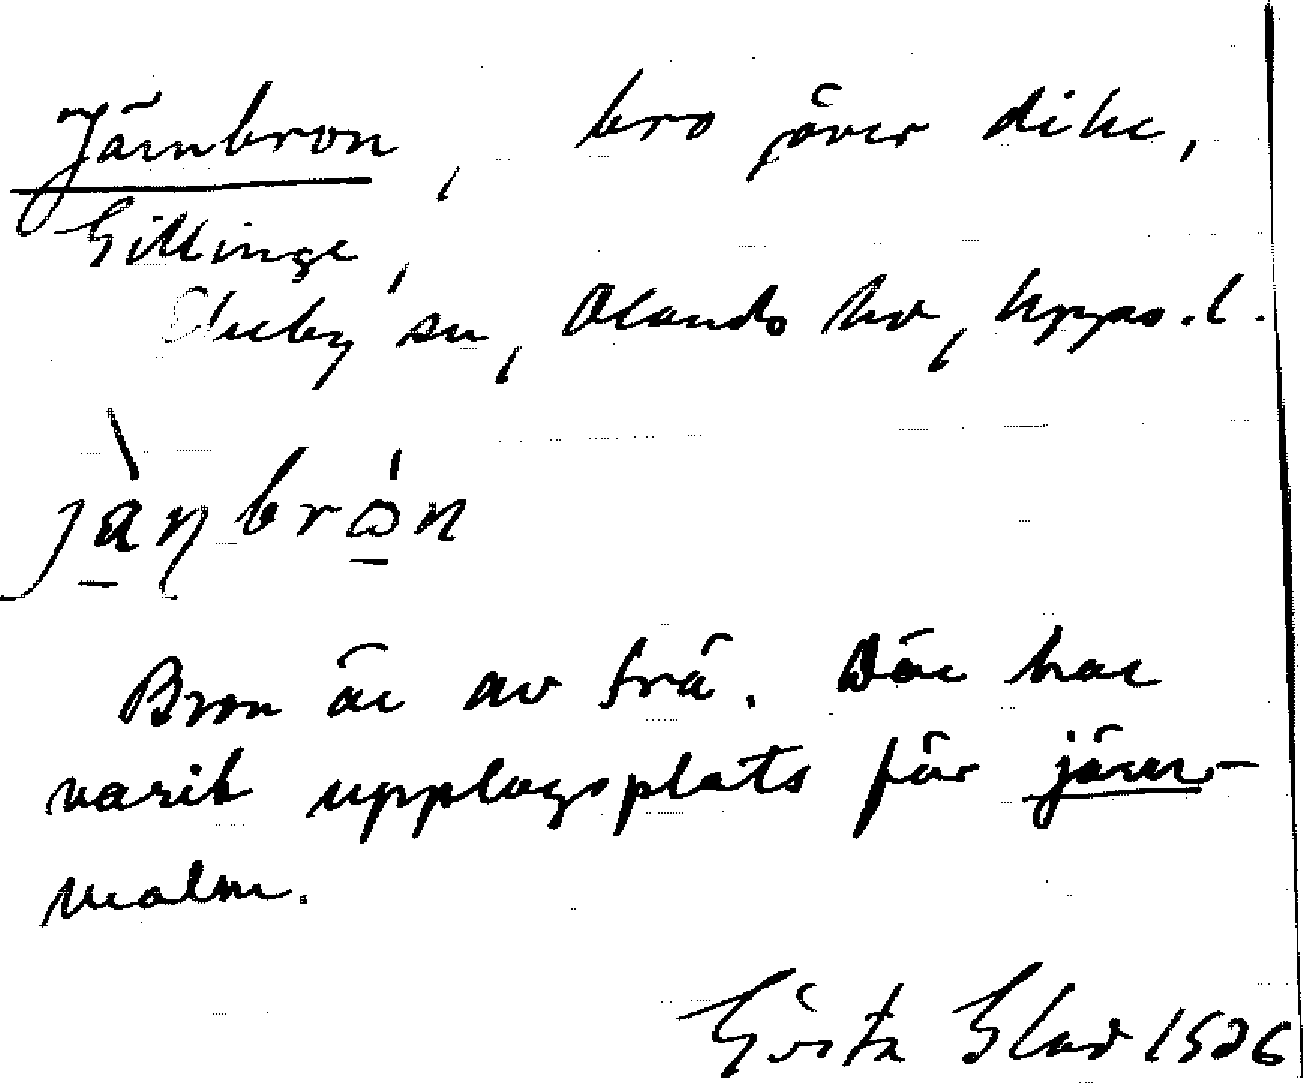 Järnbron, bro över dike,
Gillinge,
Ekeby sn, Olands hd, Upps. l.
jànbrón
Bron är av trä. Där har
varit upplagsplats för järn-
malm.
Gösta Glad 1926